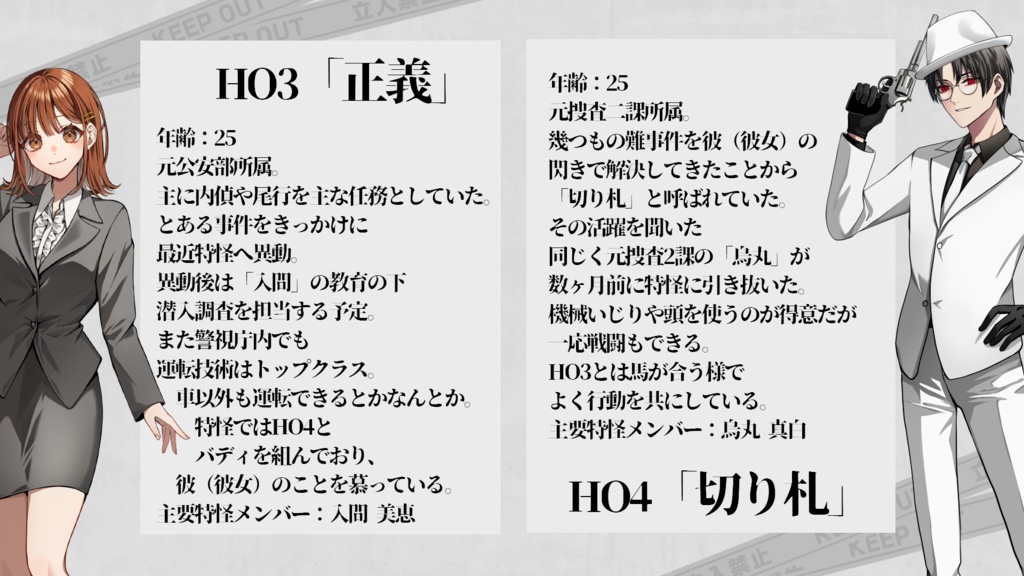 KEEP OUT
立入禁止
KEEP OUT
HO3「正義」
年齢：25
元公安部所属。
主に内偵や尾行を主な任務としていた。
とある事件をきっかけに
最近特怪へ異動。
異動後は「入間」の教育の下
潜入調査を担当する予定。
また警視庁内でも
運転技術はトップクラス。
車以外も運転できるとかなんとか。
特怪ではHO4と
バディを組んでおり、
彼（彼女）のことを慕っている。
主要特怪メンバー：入間 美恵
年齢：25
元捜査二課所属。
幾つもの難事件を彼（彼女）の
閃きで解決してきたことから
「切り札」と呼ばれていた。
その活躍を聞いた
同じく元捜査2課の「烏丸」が
数ヶ月前に特怪に引き抜いた。
機械いじりや頭を使うのが得意だが
一応戦闘もできる。
HO3とは馬が合う様で
よく行動を共にしている。
主要特怪メンバー：烏丸 真白
HO4「切り札」
立入禁止
KEEP